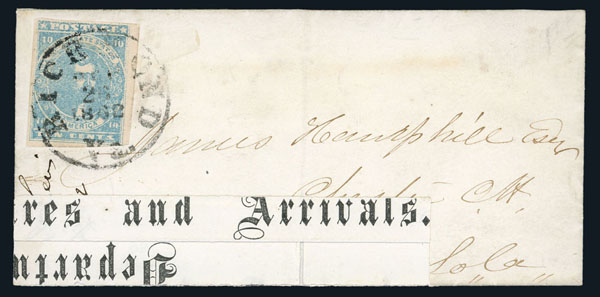 POSTAGE
10 10
AMERICA
TEN CENTS
RICHMOND
VA
1862
James Hemphill Esqr
Chester CH.
So Ca
res and Arrivals.
Departu